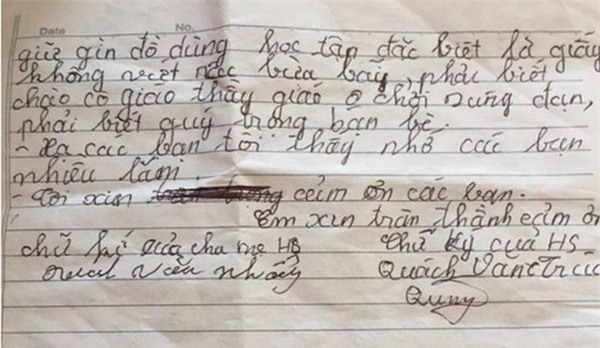 Date No.
giữ gìn đồ dùng học tập đặc biệt là giấy
không viết bừa bãy, phải biết
chào cô giáo thầy giáo chơi
phải biết quý trọng bạn bè.
- Xa các bạn tôi thấy nhớ các bạn
nhiều lắm.
- Tôi xin cảm ơn các bạn.
Em xin trân thành cảm ơn
chữ kí của cha mẹ HS Chữ ký của HS
Quách